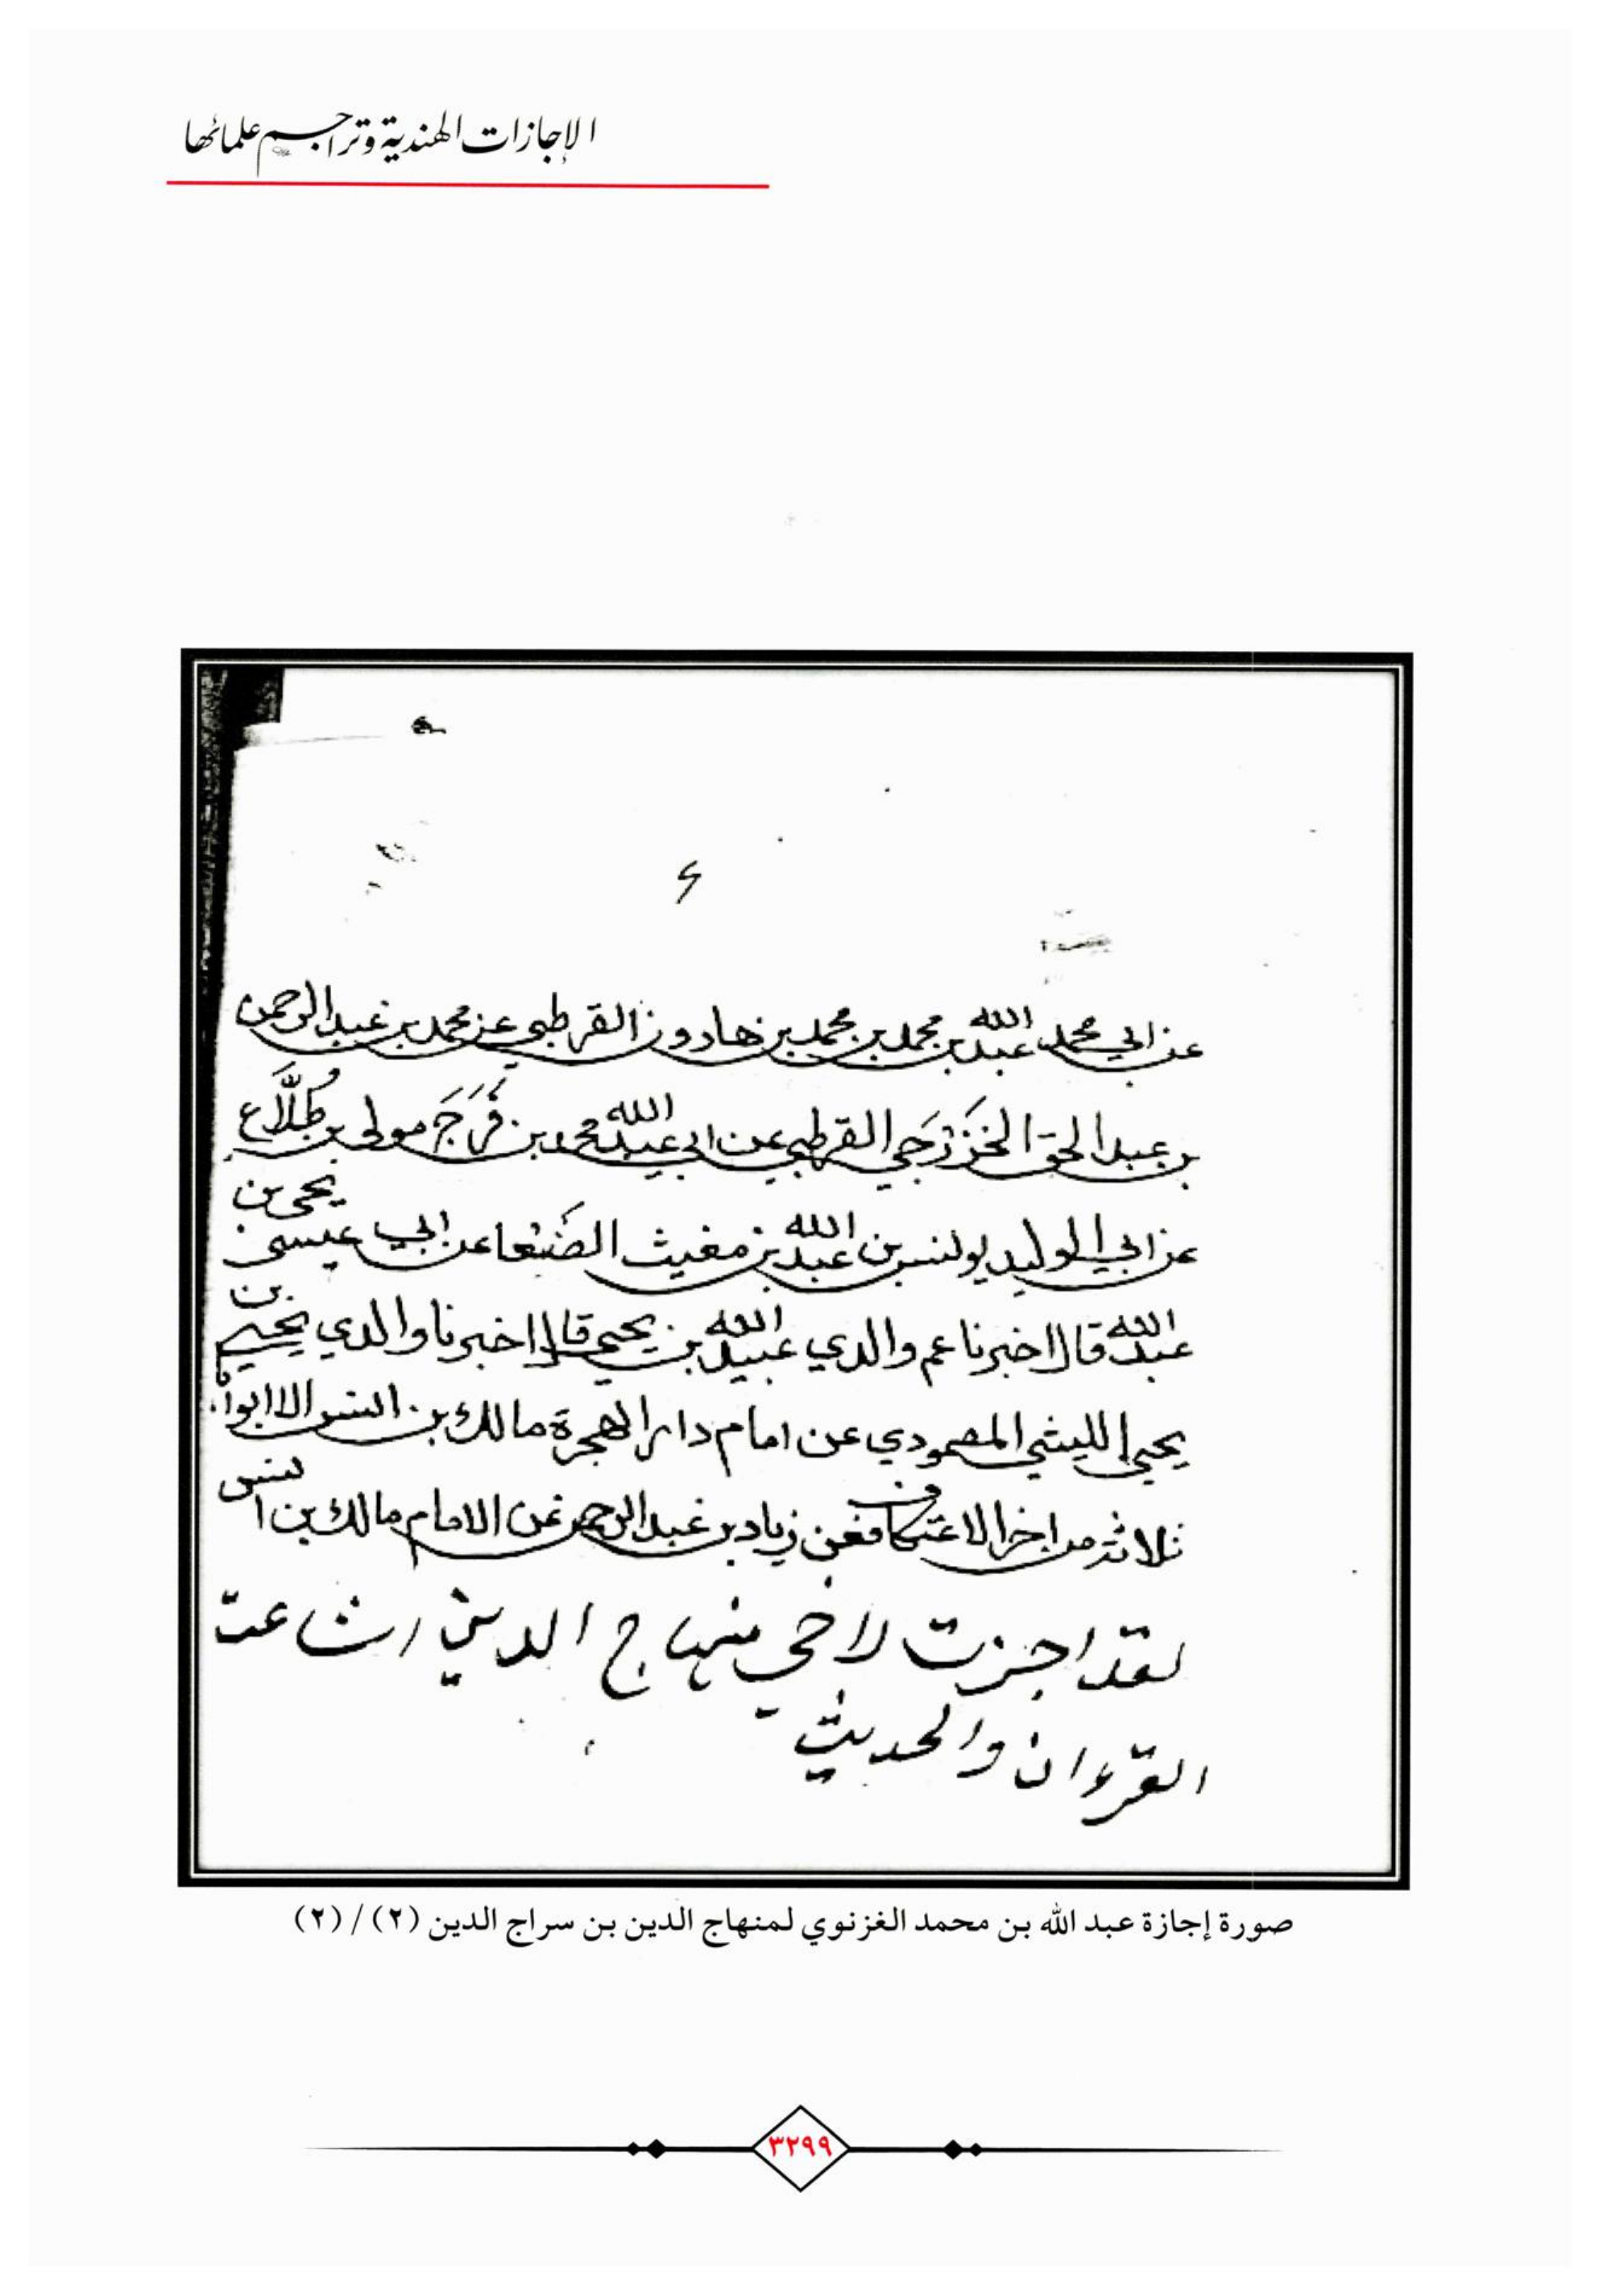 الإجازات الهندية وتراجم علمائها
٦
عن ابي محمد عبد الله بن محمد بن محمد بن هارون القرطبي عن محمد بن عبد الرحمن
بن عبد الحق الخَزْرَجي القرطبي عن ابي عبد الله محمد بن فَرَجَ مولى بن طُلَّاع
عن ابي الوليد يونس بن عبد الله بن مغيث الصَفّا عن ابي عيسى يحيى بن
عبد الله قال اخبرنا عم والدي عبيد الله بن يحيى قال اخبرنا والدي يحيى بن
يحيى الليثي المصمودي عن امام دار الهجرة مالك بن انس الا ابوابا
ثلاثة من اخر الاعتكاف فعن زياد بن عبد الرحمن عن الامام مالك بن انس
لقد اجزت لاخي منهاج الدين اشاعت
القرءان والحديث
صورة إجازة عبد الله بن محمد الغزنوي لمنهاج الدين بن سراج الدين (٢) / (٢)
٣٢٩٩